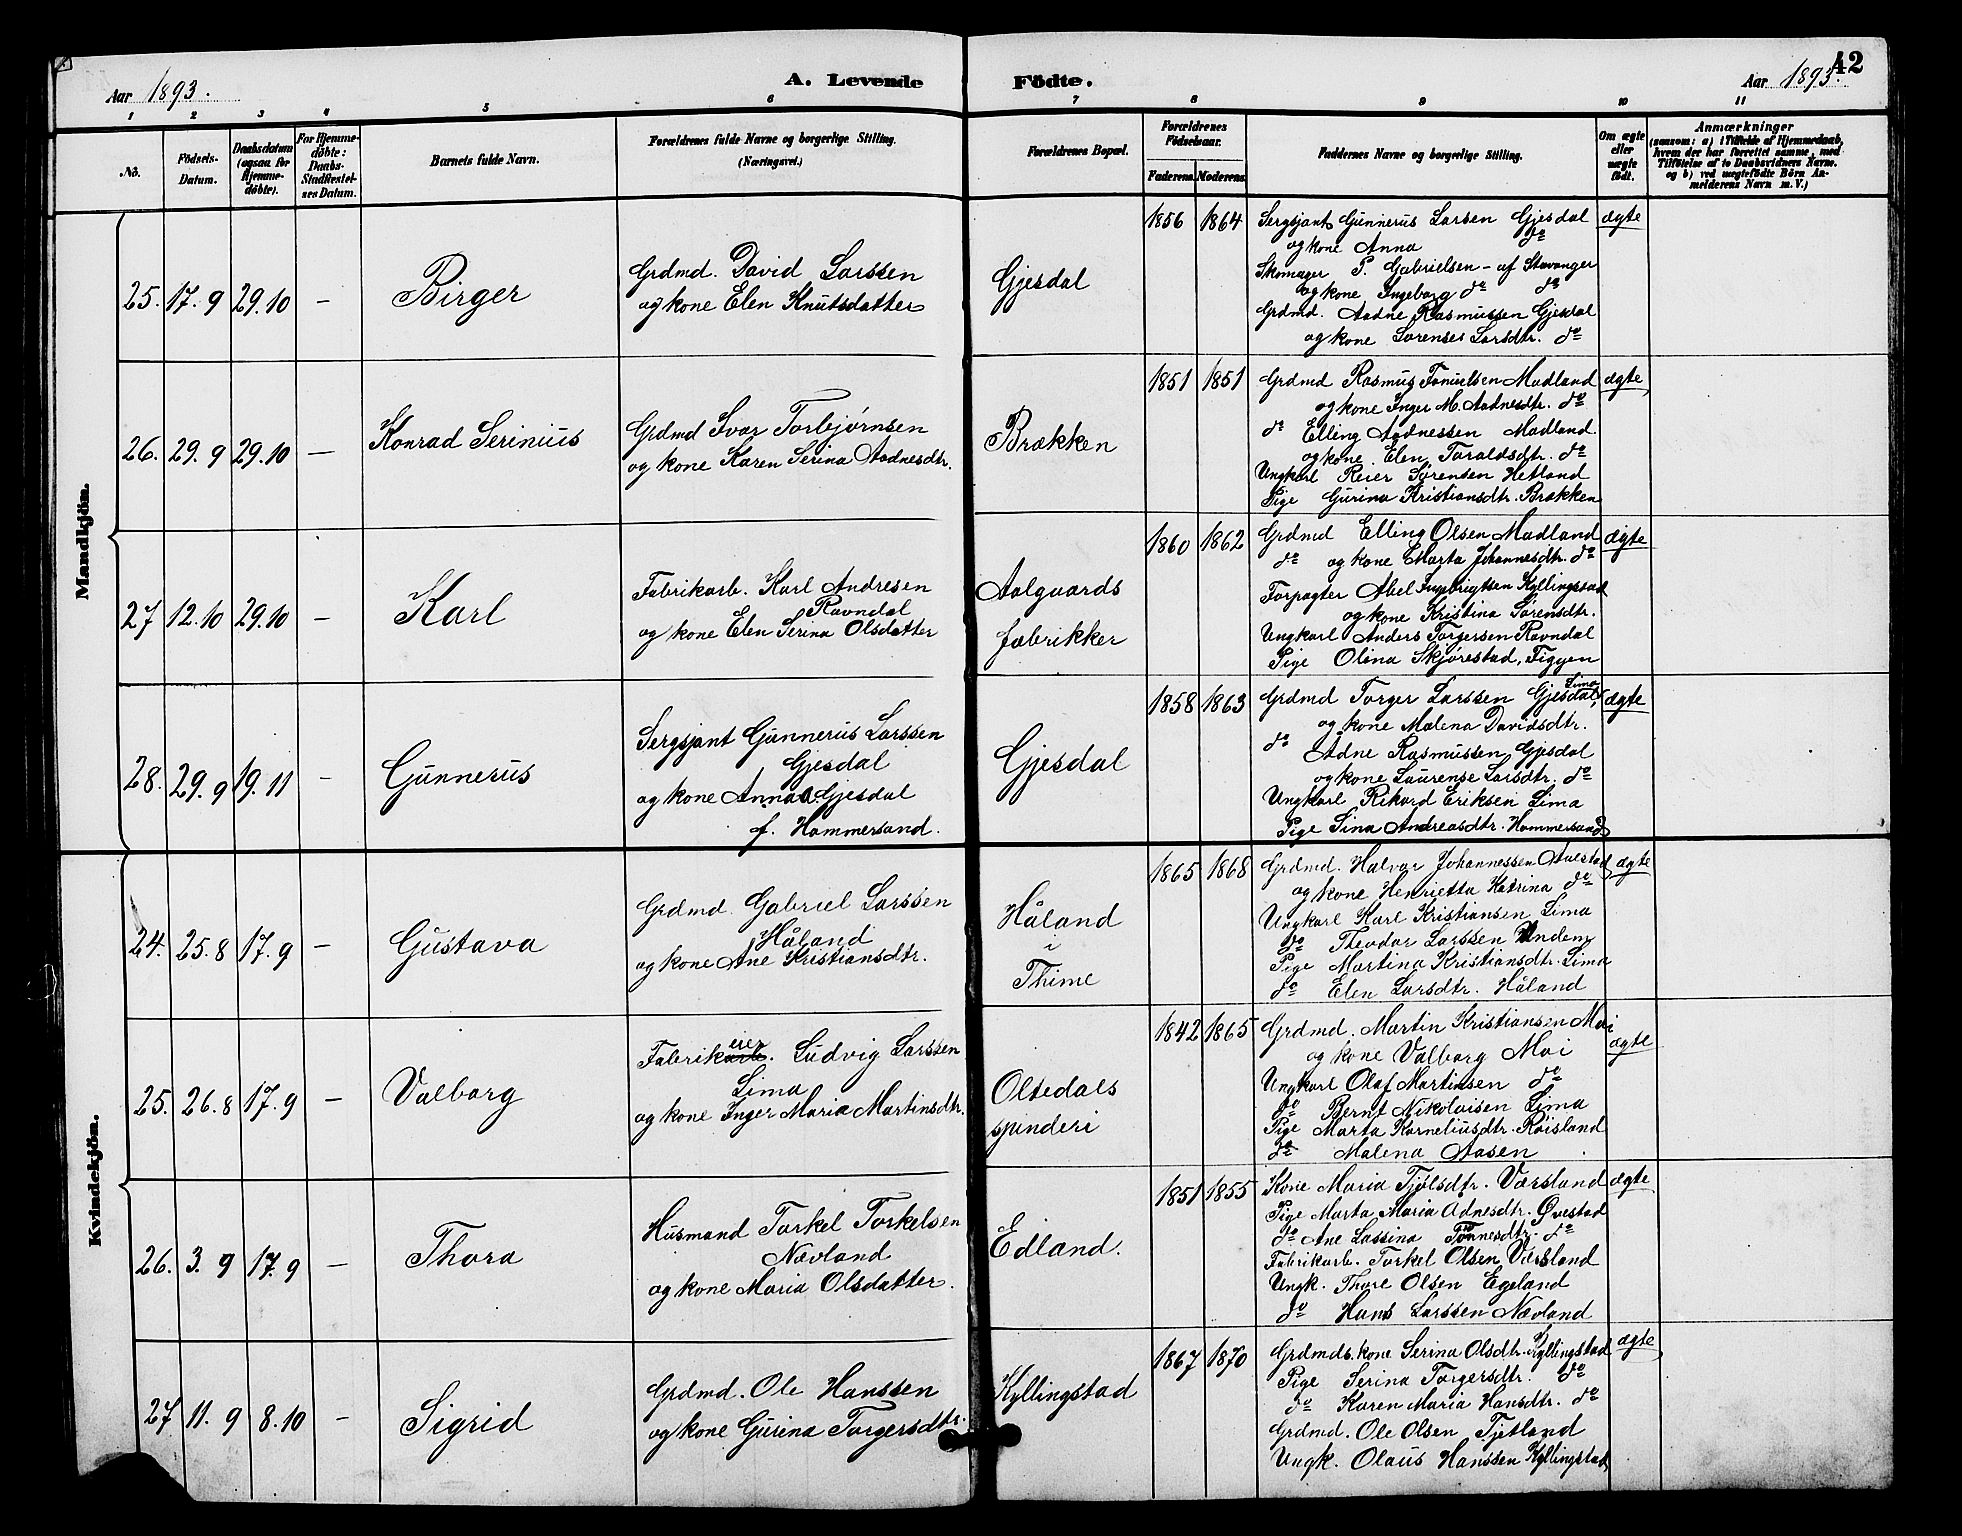 Aar 1893.
A. Levende Födte.
Aar 1893.
42
1 2 3 4 5 6 7 8 9 10 11
No.
Födsels-Datum.
Daabsdatum (ogsaa for Hjemme-döbte).
For Hjemme-döbte: Daabs-Stadfæstel-ses Datum.
Barnets fulde Navn.
Forældrenes fulde Navne og borgerlige Stilling. (Næringsvei.)
Forældrenes Bopæl.
Forældrenes Födselsaar.
Faderens. Moderens.
Faddernes Navne og borgerlige Stilling.
Om ægte eller uægte födt.
Anmærkninger
(saasom: a) i Tilfælde af Hjemmedaab, hvem der har forrettet samme, med Tilföielse af to Daabsvidners Navne, og b) ved uægtefödte Börn An-melderens Navn m. V.)
Mandkjön.
25. 17. 9 29.10 – Birger
Grdmd. David Larssen
og kone Elen Knutsdatter
Gjesdal
1856 1864
Sergsjant Gunnerus Larsen Gjesdal
og kone Anna do
Skomager P. Gabrielsen – af Stavanger
og kone Ingeborg do do
Grdmd. Aadne Rasmussen Gjesdal
og kone Lorense Larsdtr. do
ægte
26. 29. 9 29.10 – Konrad Serinius
Grdmd Ivar Torbjørnsen
og kone Karen Serina Aadnesdtr.
Brækken
1851 1851
Grdmd Rasmus Tønnesen Madland
og kone Inger M. Aadnesdtr. do
do Elling Aadnessen Madland.
og kone Elen Taraldsdtr. do
Ungkarl Reier Sørensen Hetland
Pige Gurina Kristiansdtr. Brækken
ægte
27 12.10 29.10 – Karl
Fabrikarb. Karl Andresen
Ravndal
og kone Elen Serina Olsdatter
Aalgaards
fabrikker
1860 1862
Grdmd Elling Olsen Madland
do og kone Marta Johannesdtr. do
Forpagter Abel Ingbrigtsen Kyllingstad
og kone Kristina Sørensdtr.
Ungkarl Anders Torgersen Ravndal
Pige Olina Skjørestad, Figgen
ægte
28. 29. 9 19. 11 – Gunnerus
Sergsjant Gunnerus Larssen
Gjesdal
og kone Anna Gjesdal
f. Hammersand.
Gjesdal
1858 1863
Lima
Grdmd Torger Larssen Gjesdal
og kone Malena Davidsdtr.
do Adne Rasmussen Gjesdal
og kone Laurense Larsdtr. do
Ungkarl Rikard Eriksen Lima
Pige Sina Andreasdtr. Hammersand
ægte
Kvindekjön.
24. 25. 8 17. 9 – Gustava
Grdmd. Gabriel Larssen
Håland
og kone Ane Kristiansdtr.
Håland
i
Thime
1865 1868
Grdmd. Halvor Johannessen Auestad
og kone Henrietta Katrina do
Ungkarl Karl Kristiansen Lima
do Theodor Larssen Undem
Pige Martina Kristiansdtr. Lima
do Elen Larsdtr. Håland
ægte
25. 26. 8 17. 9 – Valborg
eier
Fabrikarb. Ludvig Larssen
Lima
og kone Inger Maria Martinsdtr.
Oltedals
spinderi
1842 1865
Grdmd. Martin Kristiansen Moi
og kone Valborg Moi
Ungkarl Olaf Martinsen do
do Bernt Nikolaisen Lima
Pige Marta Korneliusdtr. Røisland
do Malena Aasen
ægte
26. 3. 9 17. 9 – Thora
Husmand Torkel Torkelsen
Nævland
og kone Maria Olsdatter.
Edland.
1851 1855
Kone Maria Tjølsdtr. Værsland
Pige Marta Maria Adnesdtr. Øvestad
do Ane Lassina Tønnesdtr. do
Fabrikarb. Torkel Olsen Værsland
Ungk. Thore Olsen Egeland
do Hans Larssen Nævland
ægte
27 11. 9 8.10 – Sigrid
Grdmd. Ole Hanssen
og kone Gurina Torgersdtr.
Kyllingstad
1867 1870
Grdmds. kone Serina Olsdtr. Kyllingstad
Pige Serina Torgersdtr. do
do Karen Maria Hansdtr. do
Grdmd. Ole Olsen Tjetland
Ungk. Olaus Hanssen Kyllingstad
ægte